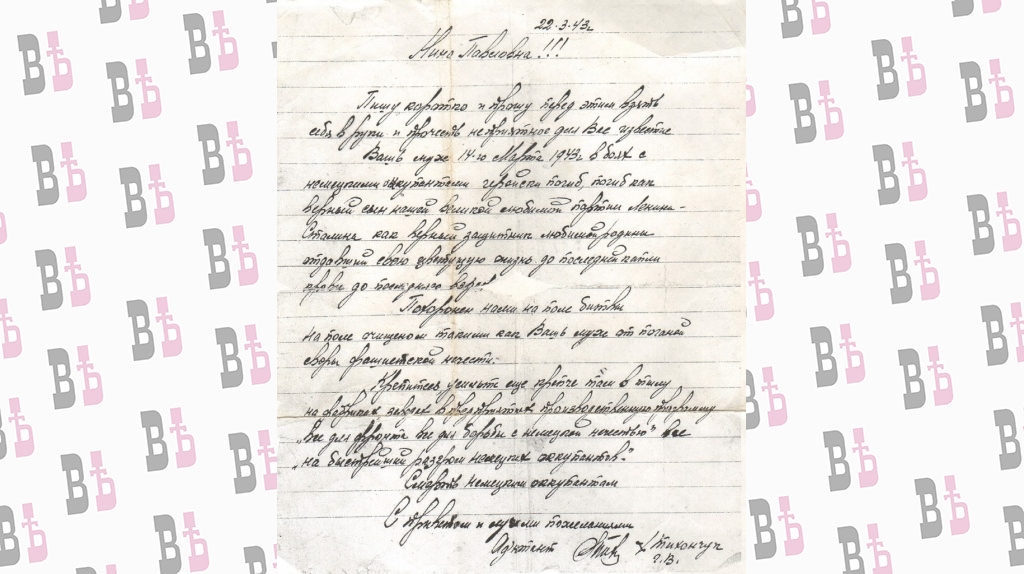 22-3-43г
Нина Павловна!!!
Пишу коротко и прошу перед этим взять
себя в руки и прочесть неприятное для Вас известие
Вашь муж 14-го Марта 1943г в боях с
немецкими оккупантами геройски погиб, погиб как
верный сын нашей великой любимой партии Ленина-
Сталина как верный защитник любимой родины
отдавший свою цветущую жизнь до последней капли
крови до последнего
Похоронен нами на поле битвы
на поле очищеном такими как Вашь муж от поганой
своры фашистской нечисти.
Крепитесь усильте еще крепче там в тылу
на фабриках заводах в предприятиях производственную программу
"все для фронта все для борьбы с немецкой нечестью" все
"на быстрейший разгром немецких оккупантов."
Смерть немецким оккупантам
С приветом и лучими пожеланиями
Адютант Тихончук
Г.В.